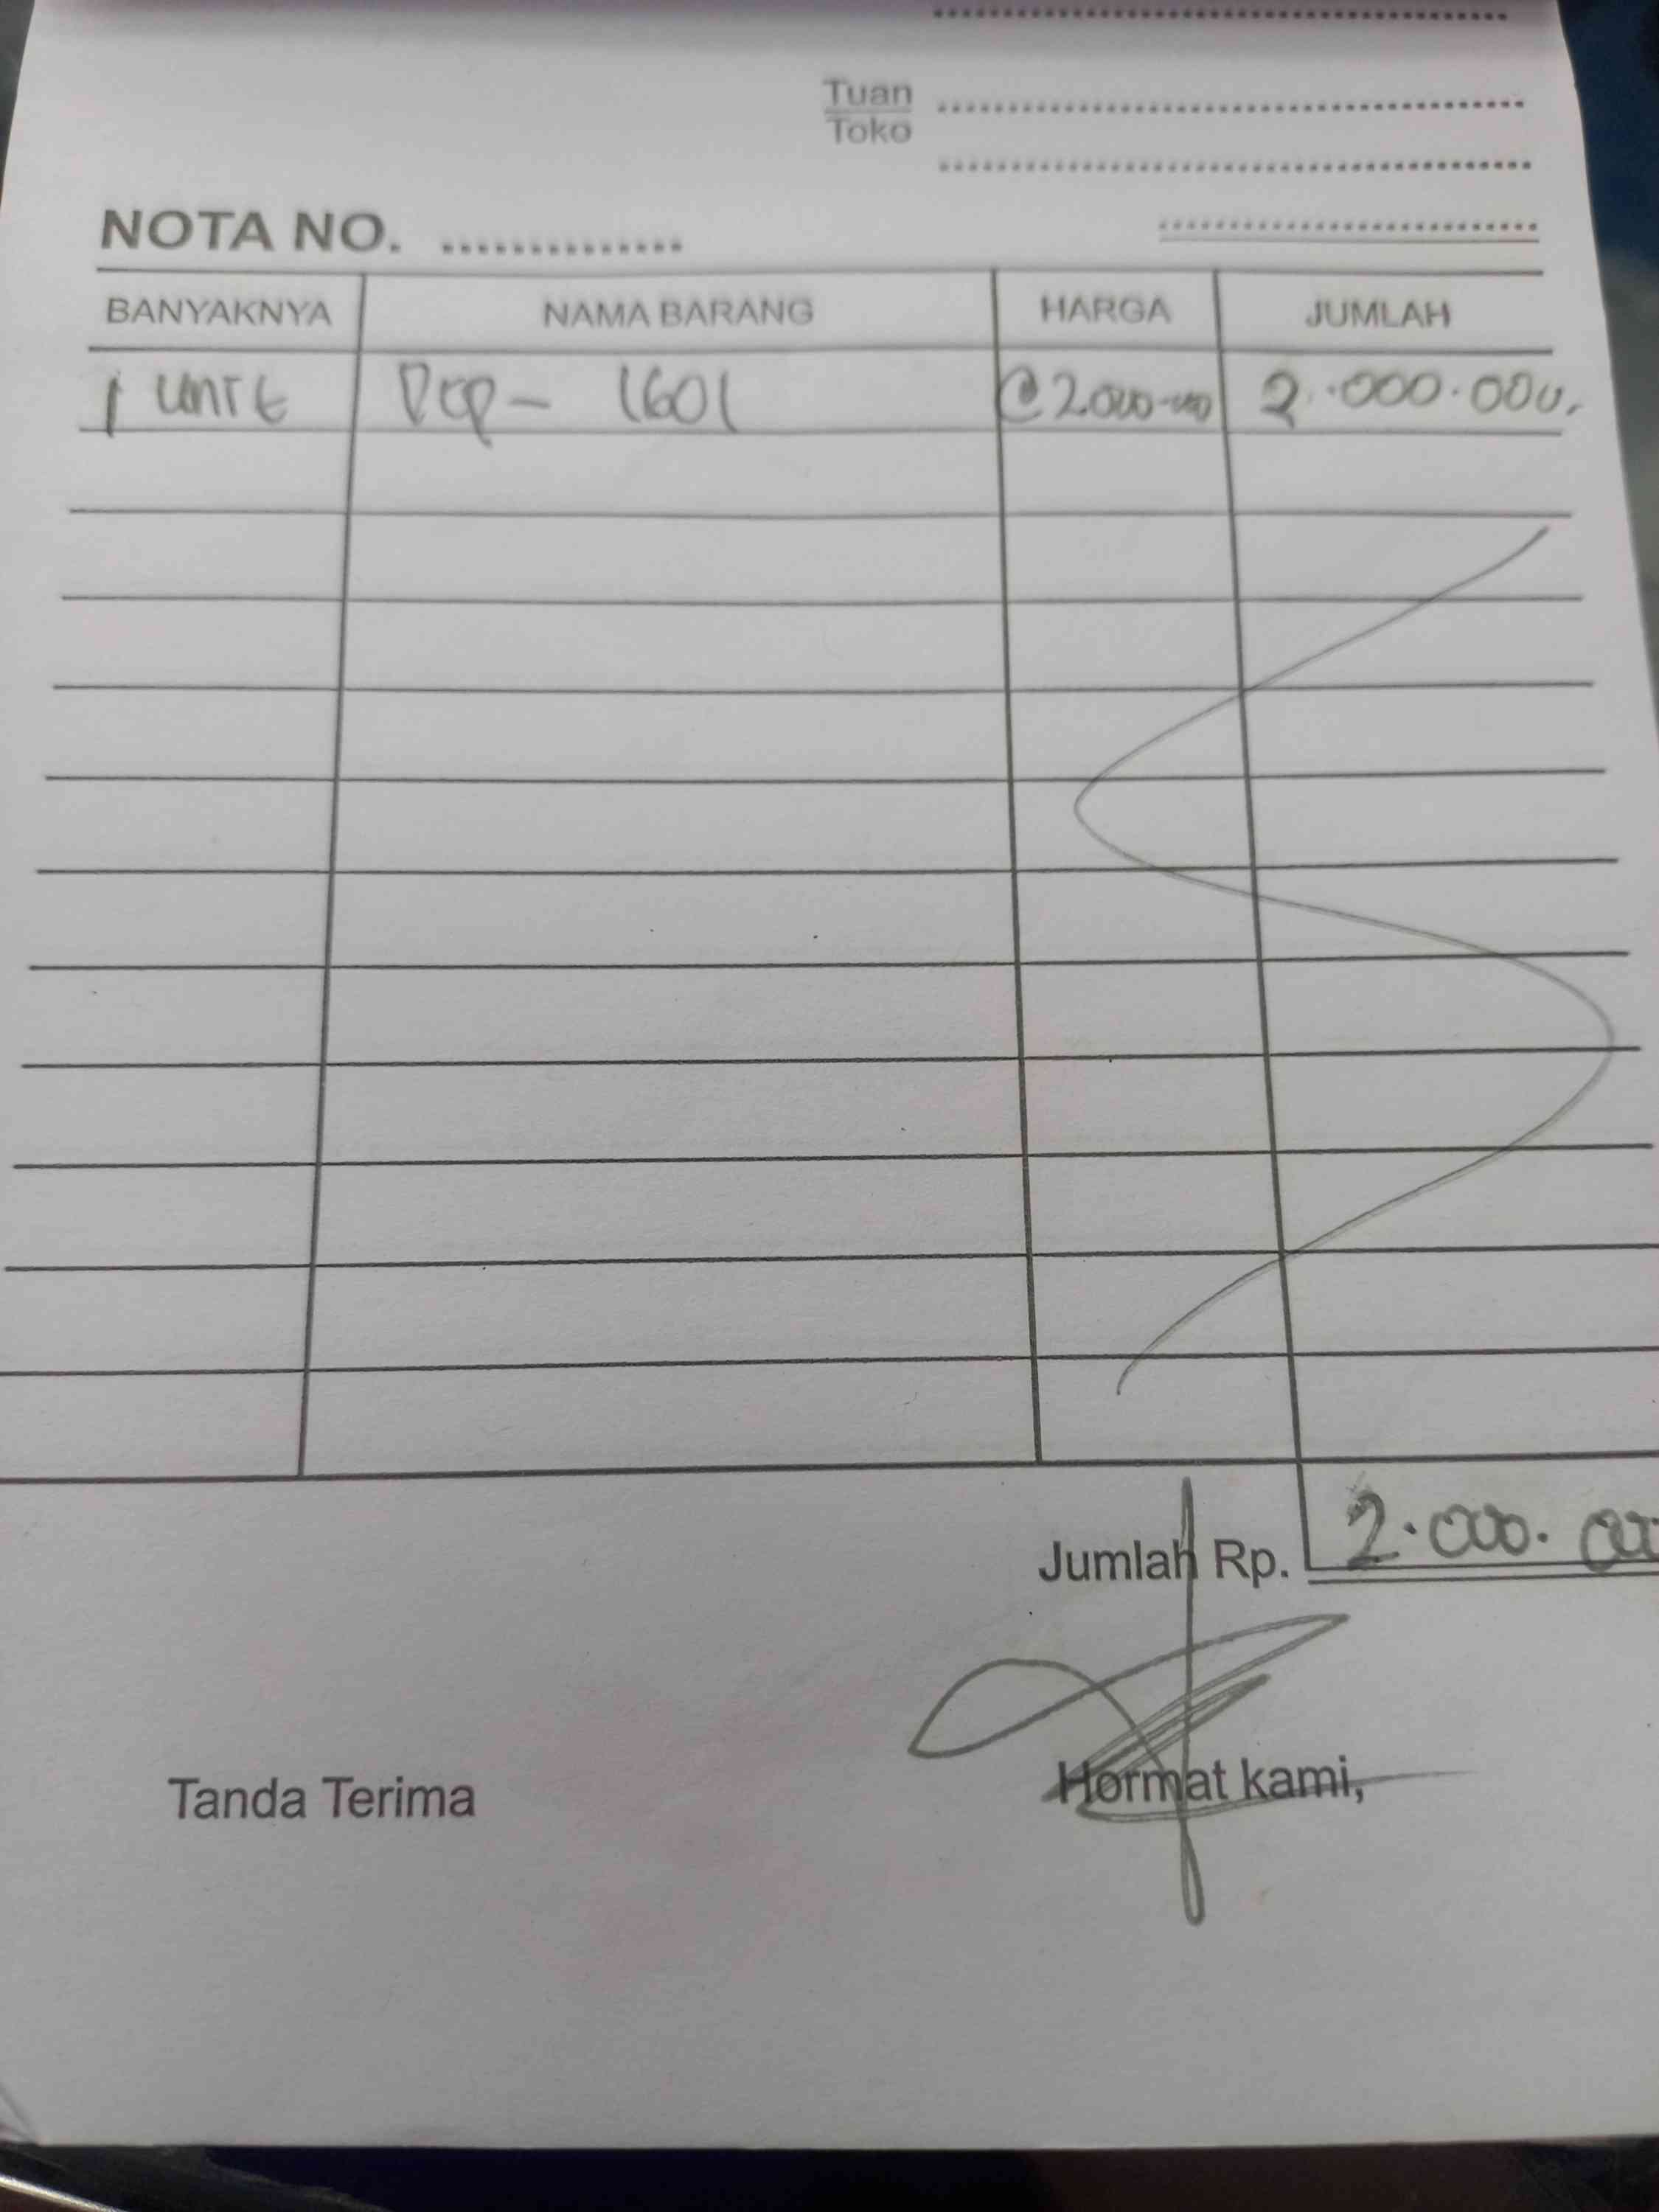 Tuan
Toko
NOTA NO.
BANYAKNYA NAMA BARANG HARGA JUMLAH
1 Unit DCP - 1601 @2000.000 2.000.000,
Jumlah Rp. 2.000.000
Tanda Terima Hormat kami,